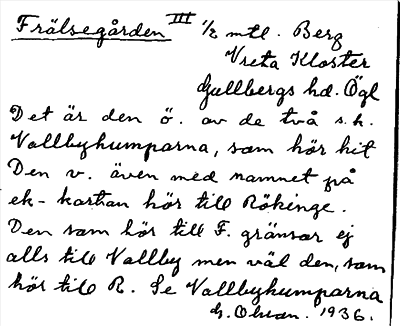 Frälsegården III 1/2 mtl. Berg
Vreta Kloster
Gullbergs hd. Ögl
Det är den ö. av de två s.k.
Vallbyhumparna, som hör hit
Den v. även med namnet på
ek-kartan hör till Rökinge.
Den som hör till F. gränsar ej
alls till Vallby men väl den, som
hör till R. Se Vallbyhumparna
G. Olsson. 1936.